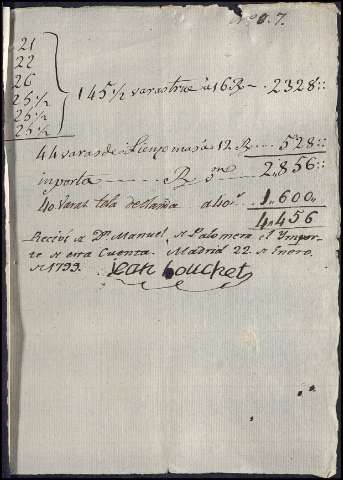 Nº 8. 7.
21
22
26
25 1/2
25 1/2
25 1/2
145 1/2 varas true à 16 R 2328
44 varas de Lienzo mas à 12 R 528
importa R 2,856
40 varas tela de olanda a 40 1,600
4,456
Recivi de Dn. Manuel de Palomera el Impor-
te de esta Cuenta. Madrid 22 de Enero
de 1799. jean bouchet